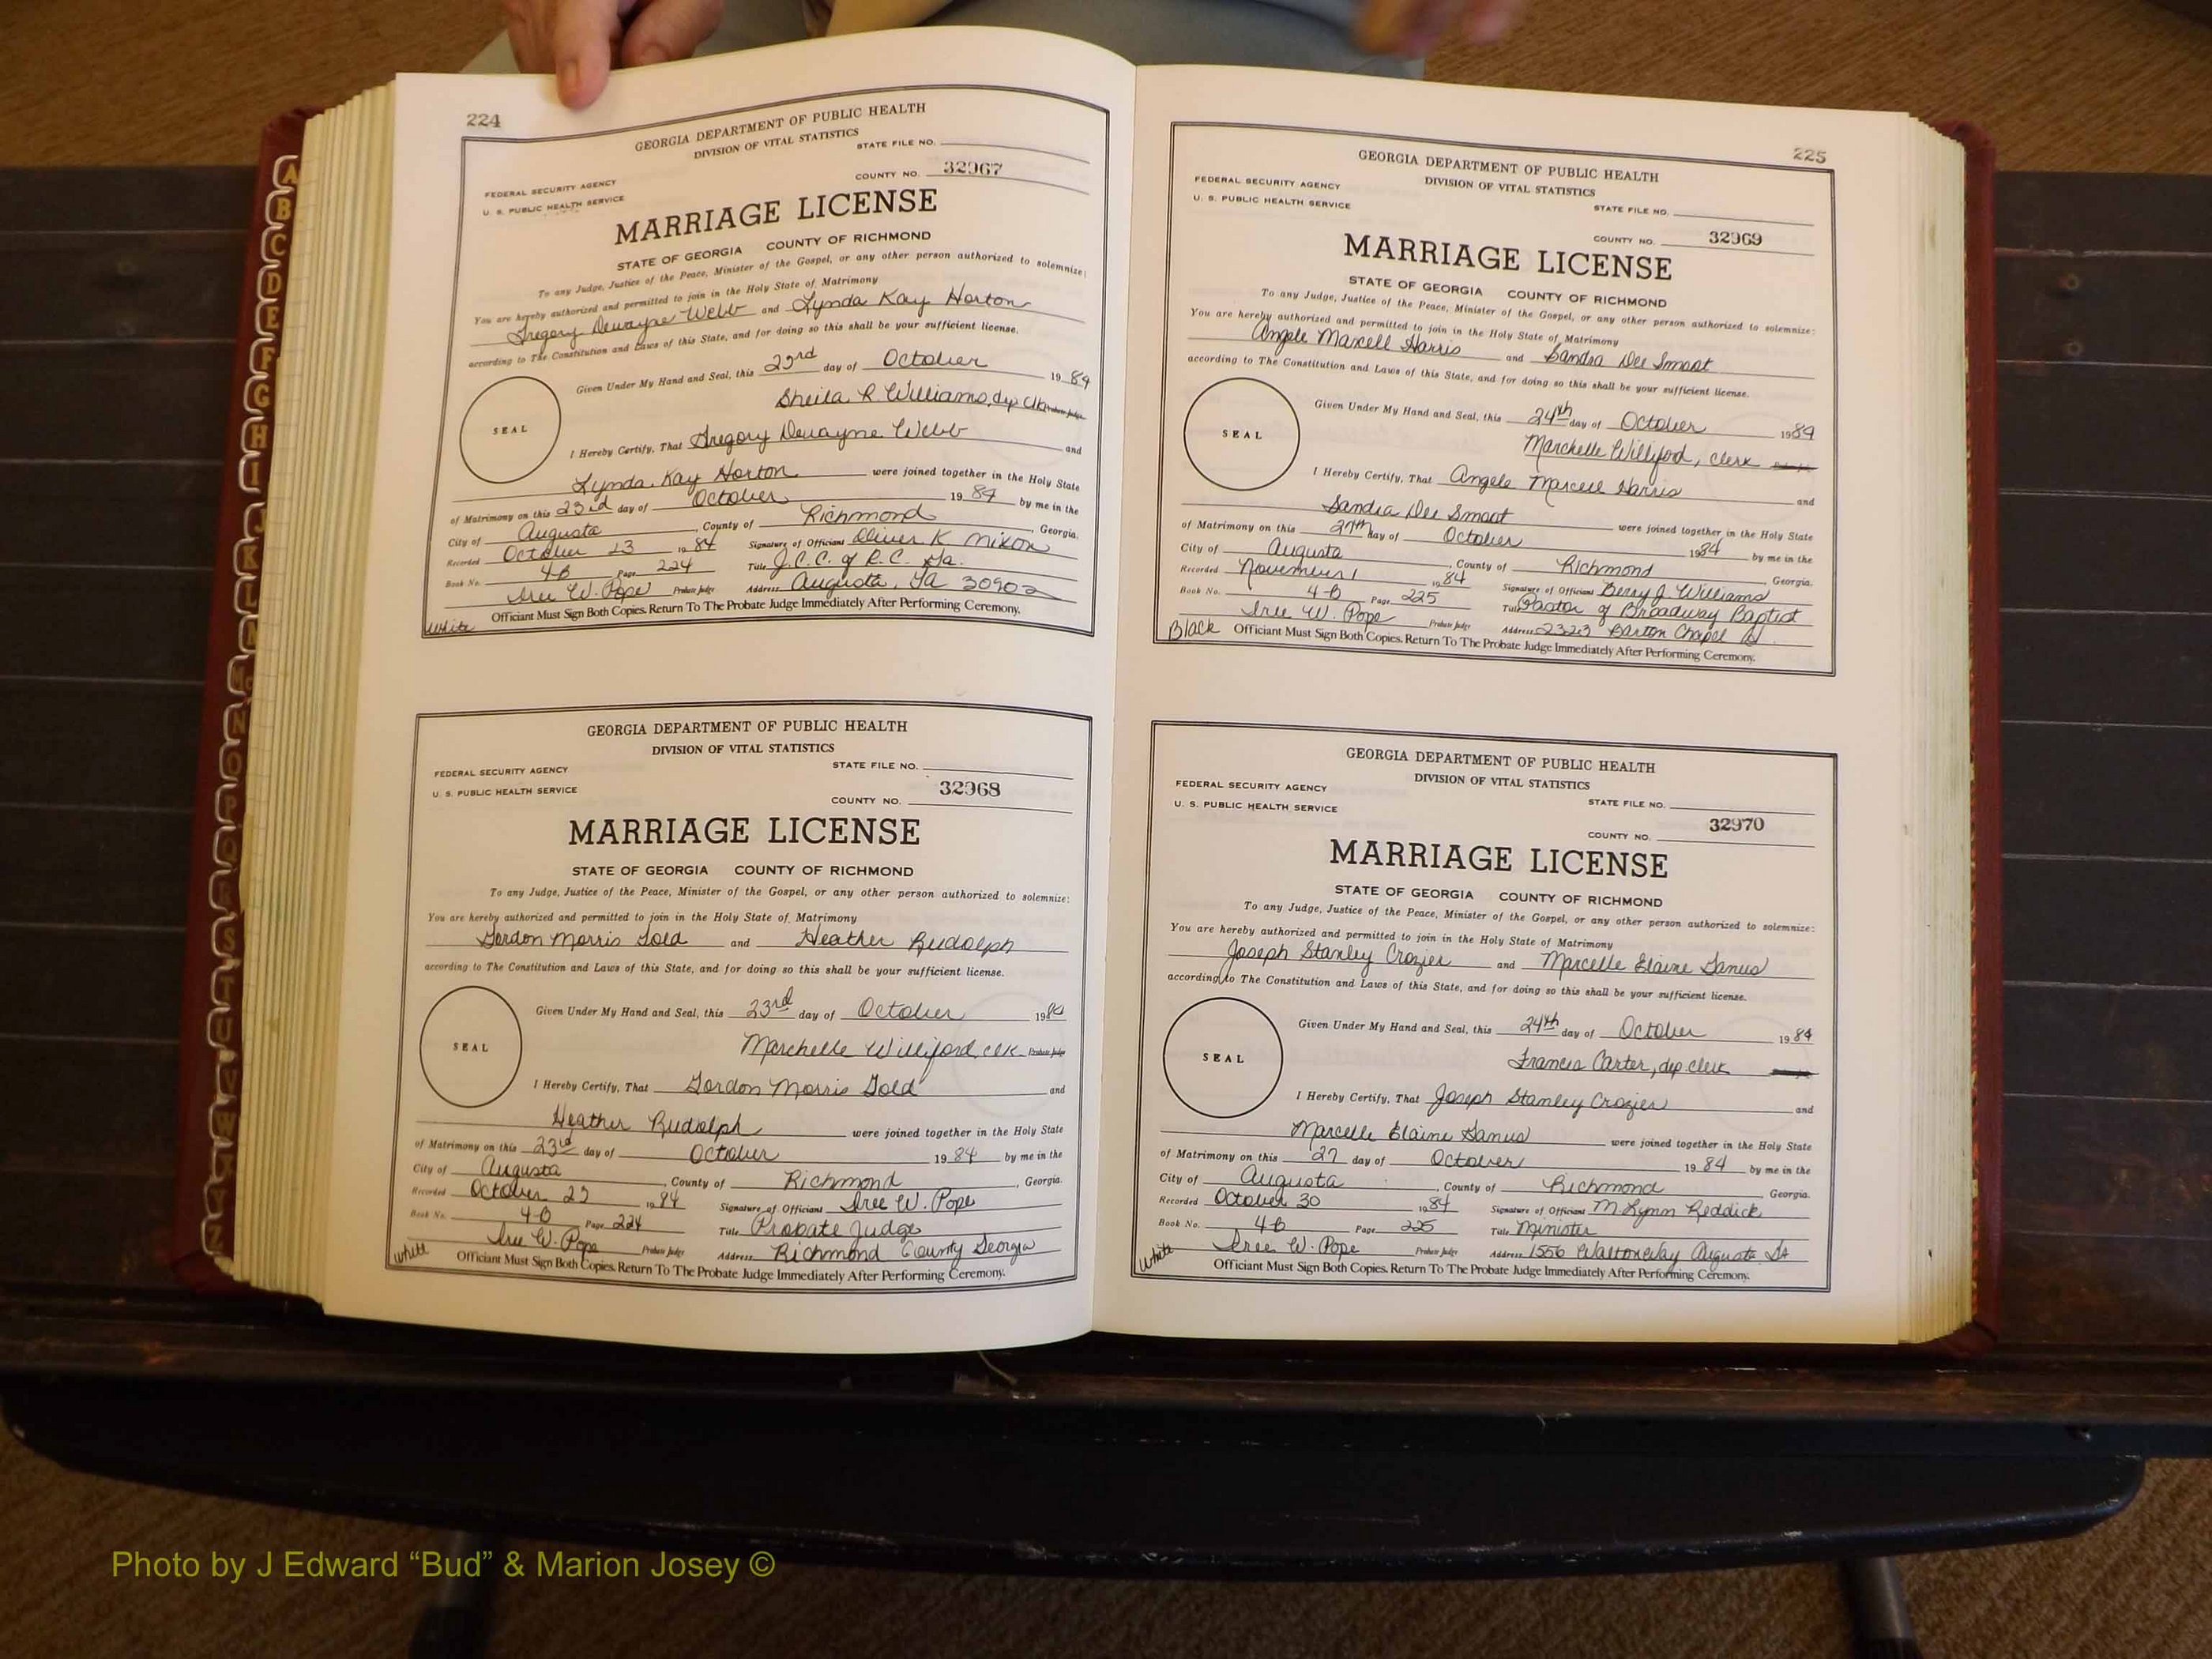 224
GEORGIA DEPARTMENT OF PUBLIC HEALTH
DIVISION OF VITAL STATISTICS
STATE FILE NO.
FEDERAL SECURITY AGENCY
U. S. PUBLIC HEALTH SERVICE
COUNTY NO. 32967
MARRIAGE LICENSE
STATE OF GEORGIA COUNTY OF RICHMOND
To any Judge, Justice of the Peace, Minister of the Gospel, or any other person authorized to solemnize:
You are hereby authorized and permitted to join in the Holy State of Matrimony
Gregory Dewayne Webb and Lynda Kay Horton
according to The Constitution and Laws of this State, and for doing so this shall be your sufficient license.
SEAL
Given Under My Hand and Seal, this 23rd day of October 1984
Sheila R Williams, dep Clk Probate Judge
I Hereby Certify, That Gregory Dewayne Webb and
Lynda Kay Horton were joined together in the Holy State
of Matrimony on this 23rd day of October 1984 by me in the
City of Augusta, County of Richmond, Georgia.
Recorded October 23 1984 Signature of Officiant Oliver K Nixon
Book No. 4-B Page 224 Title J.C.C. of R.C. Ga.
Iree W. Pope Probate Judge Address Augusta, Ga 30902
White Officiant Must Sign Both Copies. Return To The Probate Judge Immediately After Performing Ceremony.
GEORGIA DEPARTMENT OF PUBLIC HEALTH
DIVISION OF VITAL STATISTICS
FEDERAL SECURITY AGENCY
U. S. PUBLIC HEALTH SERVICE
STATE FILE NO.
COUNTY NO. 32968
MARRIAGE LICENSE
STATE OF GEORGIA COUNTY OF RICHMOND
To any Judge, Justice of the Peace, Minister of the Gospel, or any other person authorized to solemnize:
You are hereby authorized and permitted to join in the Holy State of Matrimony
Gordon Morris Gold and Heather Rudolph
according to The Constitution and Laws of this State, and for doing so this shall be your sufficient license.
SEAL
Given Under My Hand and Seal, this 23rd day of October 1984
Marchelle Williford, clk Probate Judge
I Hereby Certify, That Gordon Morris Gold and
Heather Rudolph were joined together in the Holy State
of Matrimony on this 23rd day of October 1984 by me in the
City of Augusta, County of Richmond, Georgia.
Recorded October 23 1984 Signature of Officiant Iree W. Pope
Book No. 4-B Page 224 Title Probate Judge
Iree W. Pope Probate Judge Address Richmond County Georgia
White Officiant Must Sign Both Copies. Return To The Probate Judge Immediately After Performing Ceremony.
225
GEORGIA DEPARTMENT OF PUBLIC HEALTH
DIVISION OF VITAL STATISTICS
FEDERAL SECURITY AGENCY
U. S. PUBLIC HEALTH SERVICE
STATE FILE NO.
COUNTY NO. 32969
MARRIAGE LICENSE
STATE OF GEORGIA COUNTY OF RICHMOND
To any Judge, Justice of the Peace, Minister of the Gospel, or any other person authorized to solemnize:
You are hereby authorized and permitted to join in the Holy State of Matrimony
Angelo Marcell Harris and Sandra Dee Smoot
according to The Constitution and Laws of this State, and for doing so this shall be your sufficient license.
SEAL
Given Under My Hand and Seal, this 24th day of October 1984
Marchelle Williford, clerk
I Hereby Certify, That Angelo Marcell Harris and
Sandra Dee Smoot were joined together in the Holy State
of Matrimony on this 27th day of October 1984 by me in the
City of Augusta, County of Richmond, Georgia.
Recorded November 1 1984 Signature of Officiant Berry J. Williams
Book No. 4-B Page 225 Title Pastor of Broadway Baptist
Iree W. Pope Probate Judge Address 2323 Barton Chapel Rd
Black Officiant Must Sign Both Copies. Return To The Probate Judge Immediately After Performing Ceremony.
GEORGIA DEPARTMENT OF PUBLIC HEALTH
DIVISION OF VITAL STATISTICS
FEDERAL SECURITY AGENCY
U. S. PUBLIC HEALTH SERVICE
STATE FILE NO.
COUNTY NO. 32970
MARRIAGE LICENSE
STATE OF GEORGIA COUNTY OF RICHMOND
To any Judge, Justice of the Peace, Minister of the Gospel, or any other person authorized to solemnize:
You are hereby authorized and permitted to join in the Holy State of Matrimony
Joseph Stanley Crozier and Marcelle Elaine Hanus
according to The Constitution and Laws of this State, and for doing so this shall be your sufficient license.
SEAL
Given Under My Hand and Seal, this 24th day of October 1984
Francis Carter, dep clerk
I Hereby Certify, That Joseph Stanley Crozier and
Marcelle Elaine Hanus were joined together in the Holy State
of Matrimony on this 27 day of October 1984 by me in the
City of Augusta, County of Richmond, Georgia.
Recorded October 30 1984 Signature of Officiant M Lynn Reddick
Book No. 4-B Page 225 Title Minister
Iree W. Pope Probate Judge Address 1556 Walton Way Augusta GA
White Officiant Must Sign Both Copies. Return To The Probate Judge Immediately After Performing Ceremony.
A
B
C
D
E
F
G
H
I
J
K
L
M
Mc
N
O
P
Q
R
S
T
U
V
W
X
Y
Z
Photo by J Edward “Bud” & Marion Josey ©